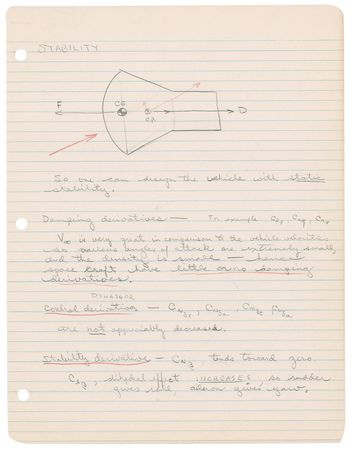 STABILITY
F CG R CP D
So one can design the vehicle with static
stability.
Damping derivatives — For example
V∞ is very great in comparison to the vehicle velocities
so various angles of attack are extremely small,
and the density is small — hence
space craft have little or no damping
derivatives.
Control derivatives —
are not appreciably decreased.
Stability derivative — tends toward zero.
dihedral effect INCREASES, so rudder
gives roll, aileron gives yaw.